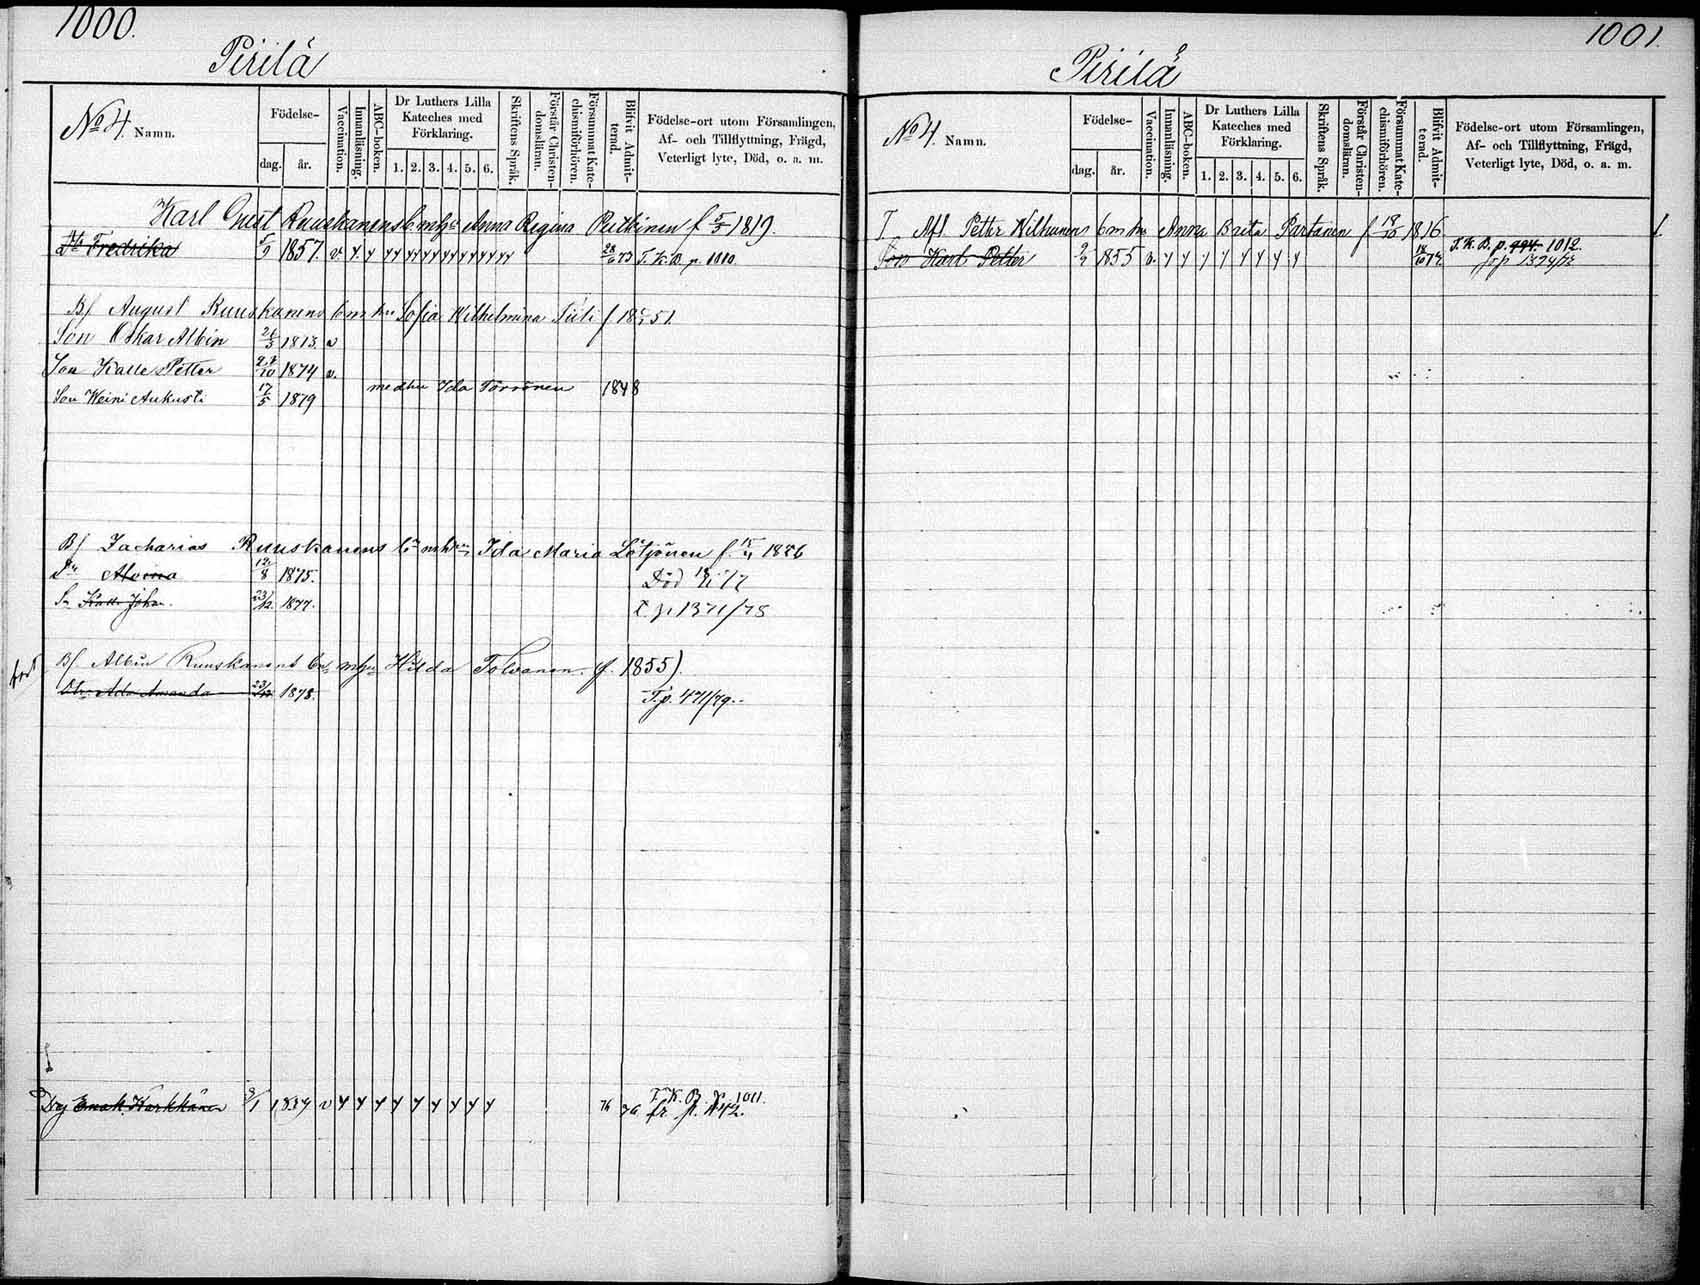 1000.
Pirilä
No 4. Namn.
Födelse-
dag. år.
Vaccination.
Innanläsning.
ABC-boken.
Dr Luthers Lilla
Kateches med
Förklaring.
1. 2. 3. 4. 5. 6.
Skriftens Språk.
Förstår Christen-
domsläran.
Försummat Kate-
chismiförhören.
Blifvit Admit-
terad.
Födelse-ort utom Församlingen,
Af- och Tillflyttning, Frägd,
Veterligt lyte, Död, o. a. m.
Karl Gust Ruuskanens b m hu Anna Regina Putkinen f 5/3 1819.
Dr Fredrika 5/9 1857. v. y y yy yy yy yy yy yy yy 73 T. K. B. p. 1010.
Bf August Ruuskanens b m hu Sofia Wilhelmina Tiili f 18 51.
Son Oskar Albin 1873. v
Son Kalle Petter 27/10 1874 v.
med hu Ida Törrönen 1848
Son Weini Aukusti 17/5 1879
Bf Zacharias Ruuskanens b m hu Ida Maria Lötjönen f. 15/4
Dr Alvina 12/8 1875. Död
Sn Kalle Johan. 23/12 1877. T. p. 1371/78
Bf Albin Ruuskanens b m hu Hilda Tolvanen (f. 1855)
Dr. Ada Amanda 23/12 1878. T. p. 471/79.
Drg Enok Karkkänen v y y y y y y y y y T. K. B. p. 1011.
fr. p.
1001.
Pirilä
No 4. Namn.
Födelse-
dag. år.
Vaccination.
Innanläsning.
ABC-boken.
Dr Luthers Lilla
Kateches med
Förklaring.
1. 2. 3. 4. 5. 6.
Skriftens Språk.
Förstår Christen-
domsläran.
Försummat Kate-
chismiförhören.
Blifvit Admit-
terad.
Födelse-ort utom Församlingen,
Af- och Tillflyttning, Frägd,
Veterligt lyte, Död, o. a. m.
T. Afl. Petter Wilhunens b m hu Anna Brita Partanen f 18/10 1816.
Son Karl Petter 2/1 1855 v. y y y y y y y y T. K. B. p. 994. 1012.